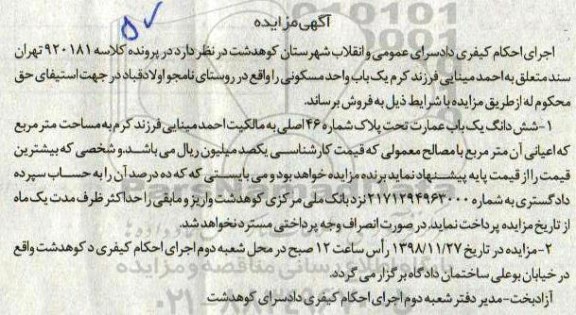 آگهی مزایده
اجرای احکام کیفری دادسرای عمومی و انقلاب شهرستان کوهدشت در نظر دارد در پرونده کلاسه ۹۲۰۱۸۱ تهران
سند متعلق به احمد مینایی فرزند کرم یک باب واحد مسکونی را واقع در روستای نامجو اولادقباد در جهت استیفای حق
محکوم له از طریق مزایده با شرایط ذیل به فروش برساند.
۱-شش دانگ یک باب عمارت تحت پلاک شماره ۴۶ اصلی به مالکیت احمد مینایی فرزند کرم به مساحت متر مربع
که اعیانی آن متر مربع با مصالح معمولی که قیمت کارشناسی یکصد میلیون ریال می باشد.و شخصی که بیشترین
قیمت را از قیمت پایه پیشنهاد نماید برنده مزایده خواهد بود و می بایستی که که ده درصد آن را به حساب سپرده
دادگستری به شماره ۲۱۷۱۲۹۴۹۶۳۰۰۰ نزد بانک ملی مرکزی کوهدشت واریز و مابقی را حداکثر ظرف مدت یک ماه
از تاریخ مزایده پرداخت نماید.در صورت انصراف وجه پرداختی مسترد نخواهد شد.
۲-مزایده در تاریخ ۱۳۹۸/۱۱/۲۷ رأس ساعت ۱۲ صبح در محل شعبه دوم اجرای احکام کیفری د کوهدشت واقع
در خیابان بوعلی ساختمان دادگاه برگزار می گردد.
آزادبخت-مدیر دفتر شعبه دوم اجرای احکام کیفری دادسرای کوهدشت